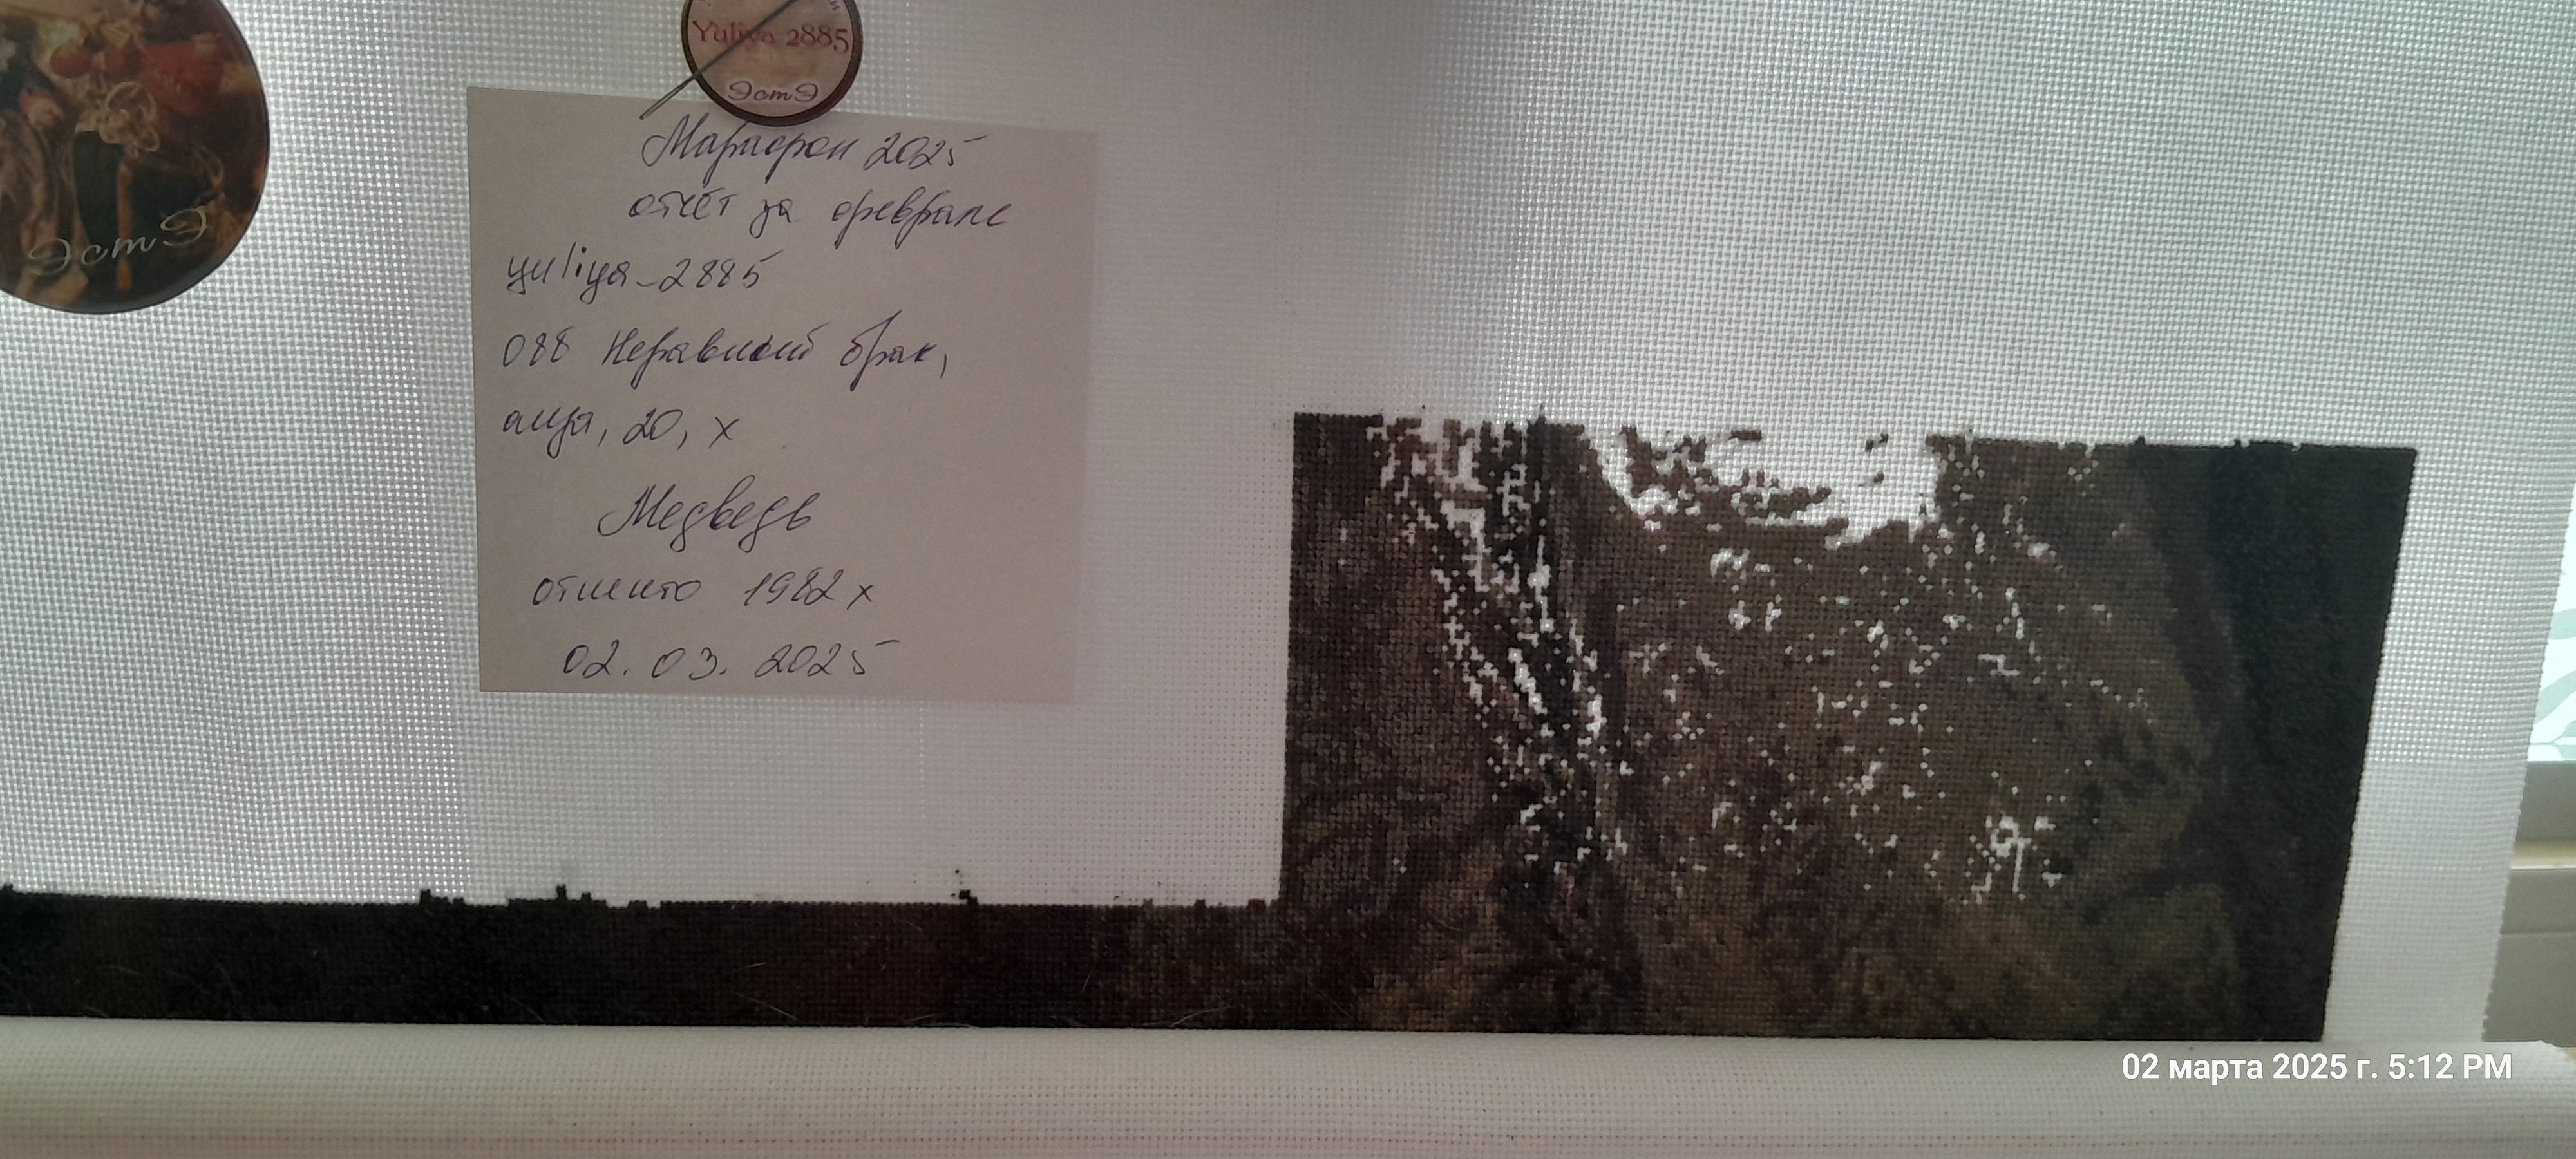 Yuliya 2885
ЭстЭ
ЭстЭ
Марафон 2025
отчёт за февраль
yuliya_2885
088 Неравный брак,
аида, 20, х
Медведь
отшито 1982 х
02.03.2025
02 марта 2025 г. 5:12 PM